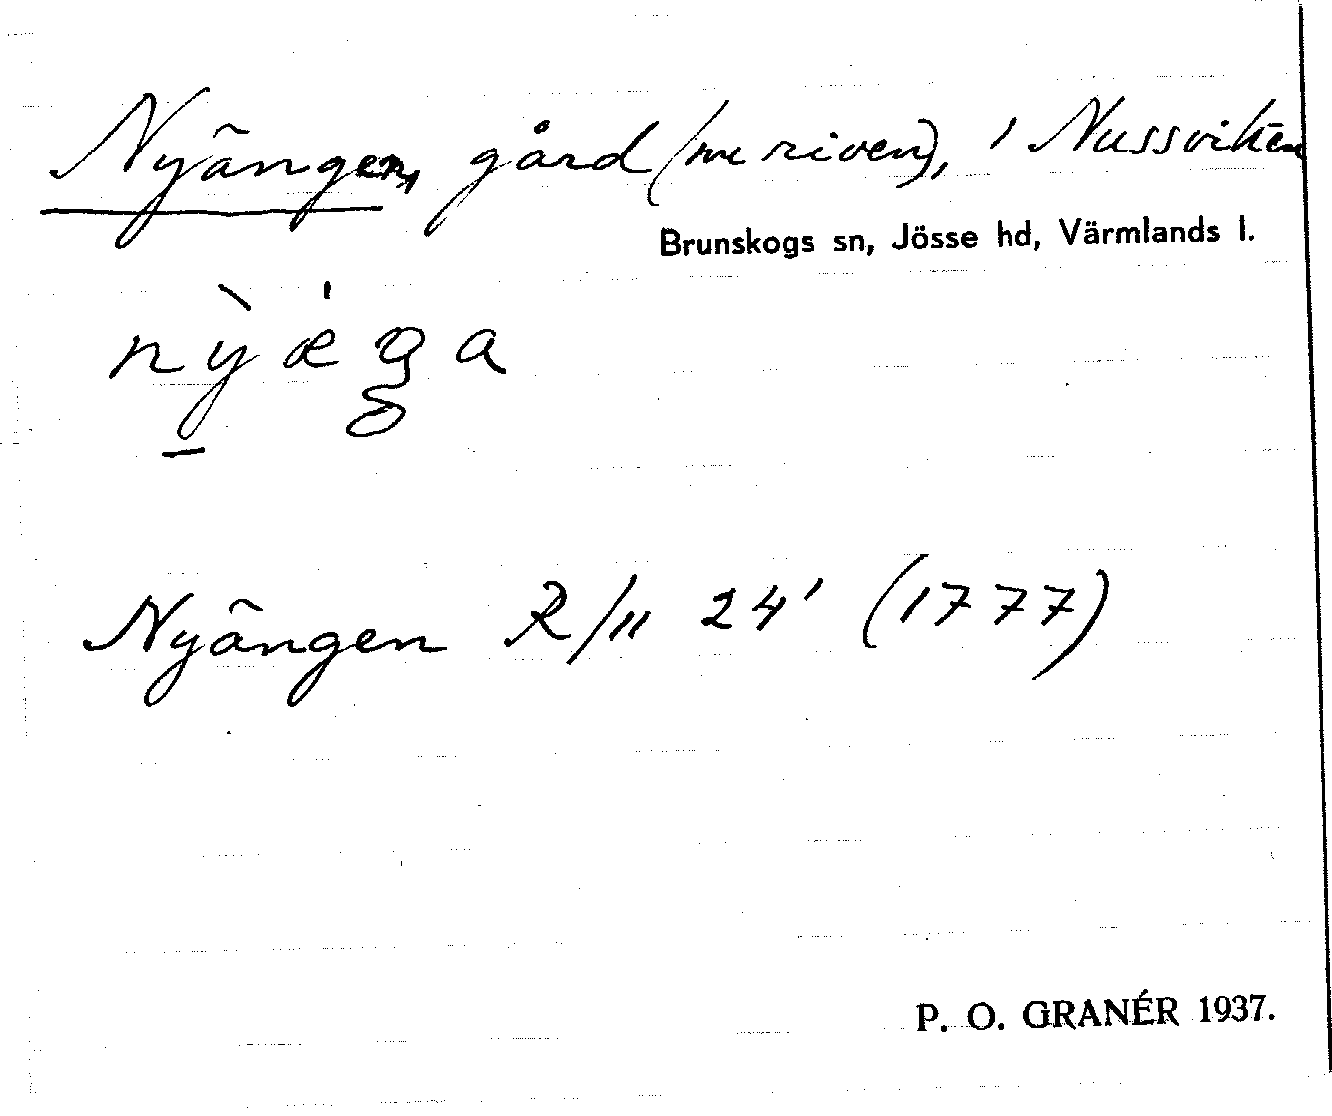 Nyängen, gård (nu riven), i Nussviken
Brunskogs sn, Jösse hd, Värmlands l.
nỳæ̍ga
Nyängen R/11 24' (1777)
P. O. GRANÉR 1937.